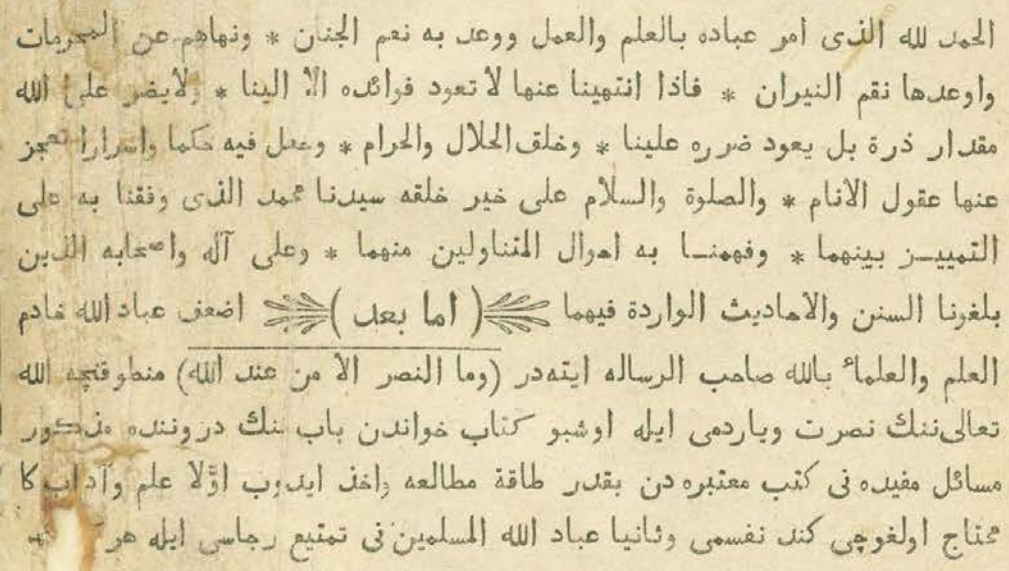 الحمد لله الذى امر عباده بالعلم والعمل ووعد به نعم الجنان * ونهاهم عن المحرمات
واوعدها نقم النيران * فاذا انتهينا عنها لا تعود فوائده الا الينا * ولايضر على الله
مقدار ذرة بل يعود ضرره علينا * وخلق الحلال والحرام * وجعل فيه حكما واسرارا تعجز
عنها عقول الانام * والصلوة والسلام على خير خلقه سيدنا محمد الذى وفقنا به على
التمييــز بينهما * وفهمنــا به احوال المتناولين منهما * وعلى آله واصحابه الذين
بلغونا السنن والاحاديث الواردة فيهما ( اما بعد ) اضعف عباد الله خادم
العلم والعلماء بالله صاحب الرساله ايتهدر (وما النصر الا من عند الله) منطوقنچه الله
تعالى ننك نصرت وياردمى ايله اوشبو كتاب خواندن باب ننك دروننده مذكور
مسائل مفيده نى كتب معتبره دن بقدر طاقة مطالعه واخذ ايدوب اوّلا علم وآداب كا
محتاج اولغوچى كند نفسمى وثانيا عباد الله المسلمين نى تمتيع رجاسى ايله هر